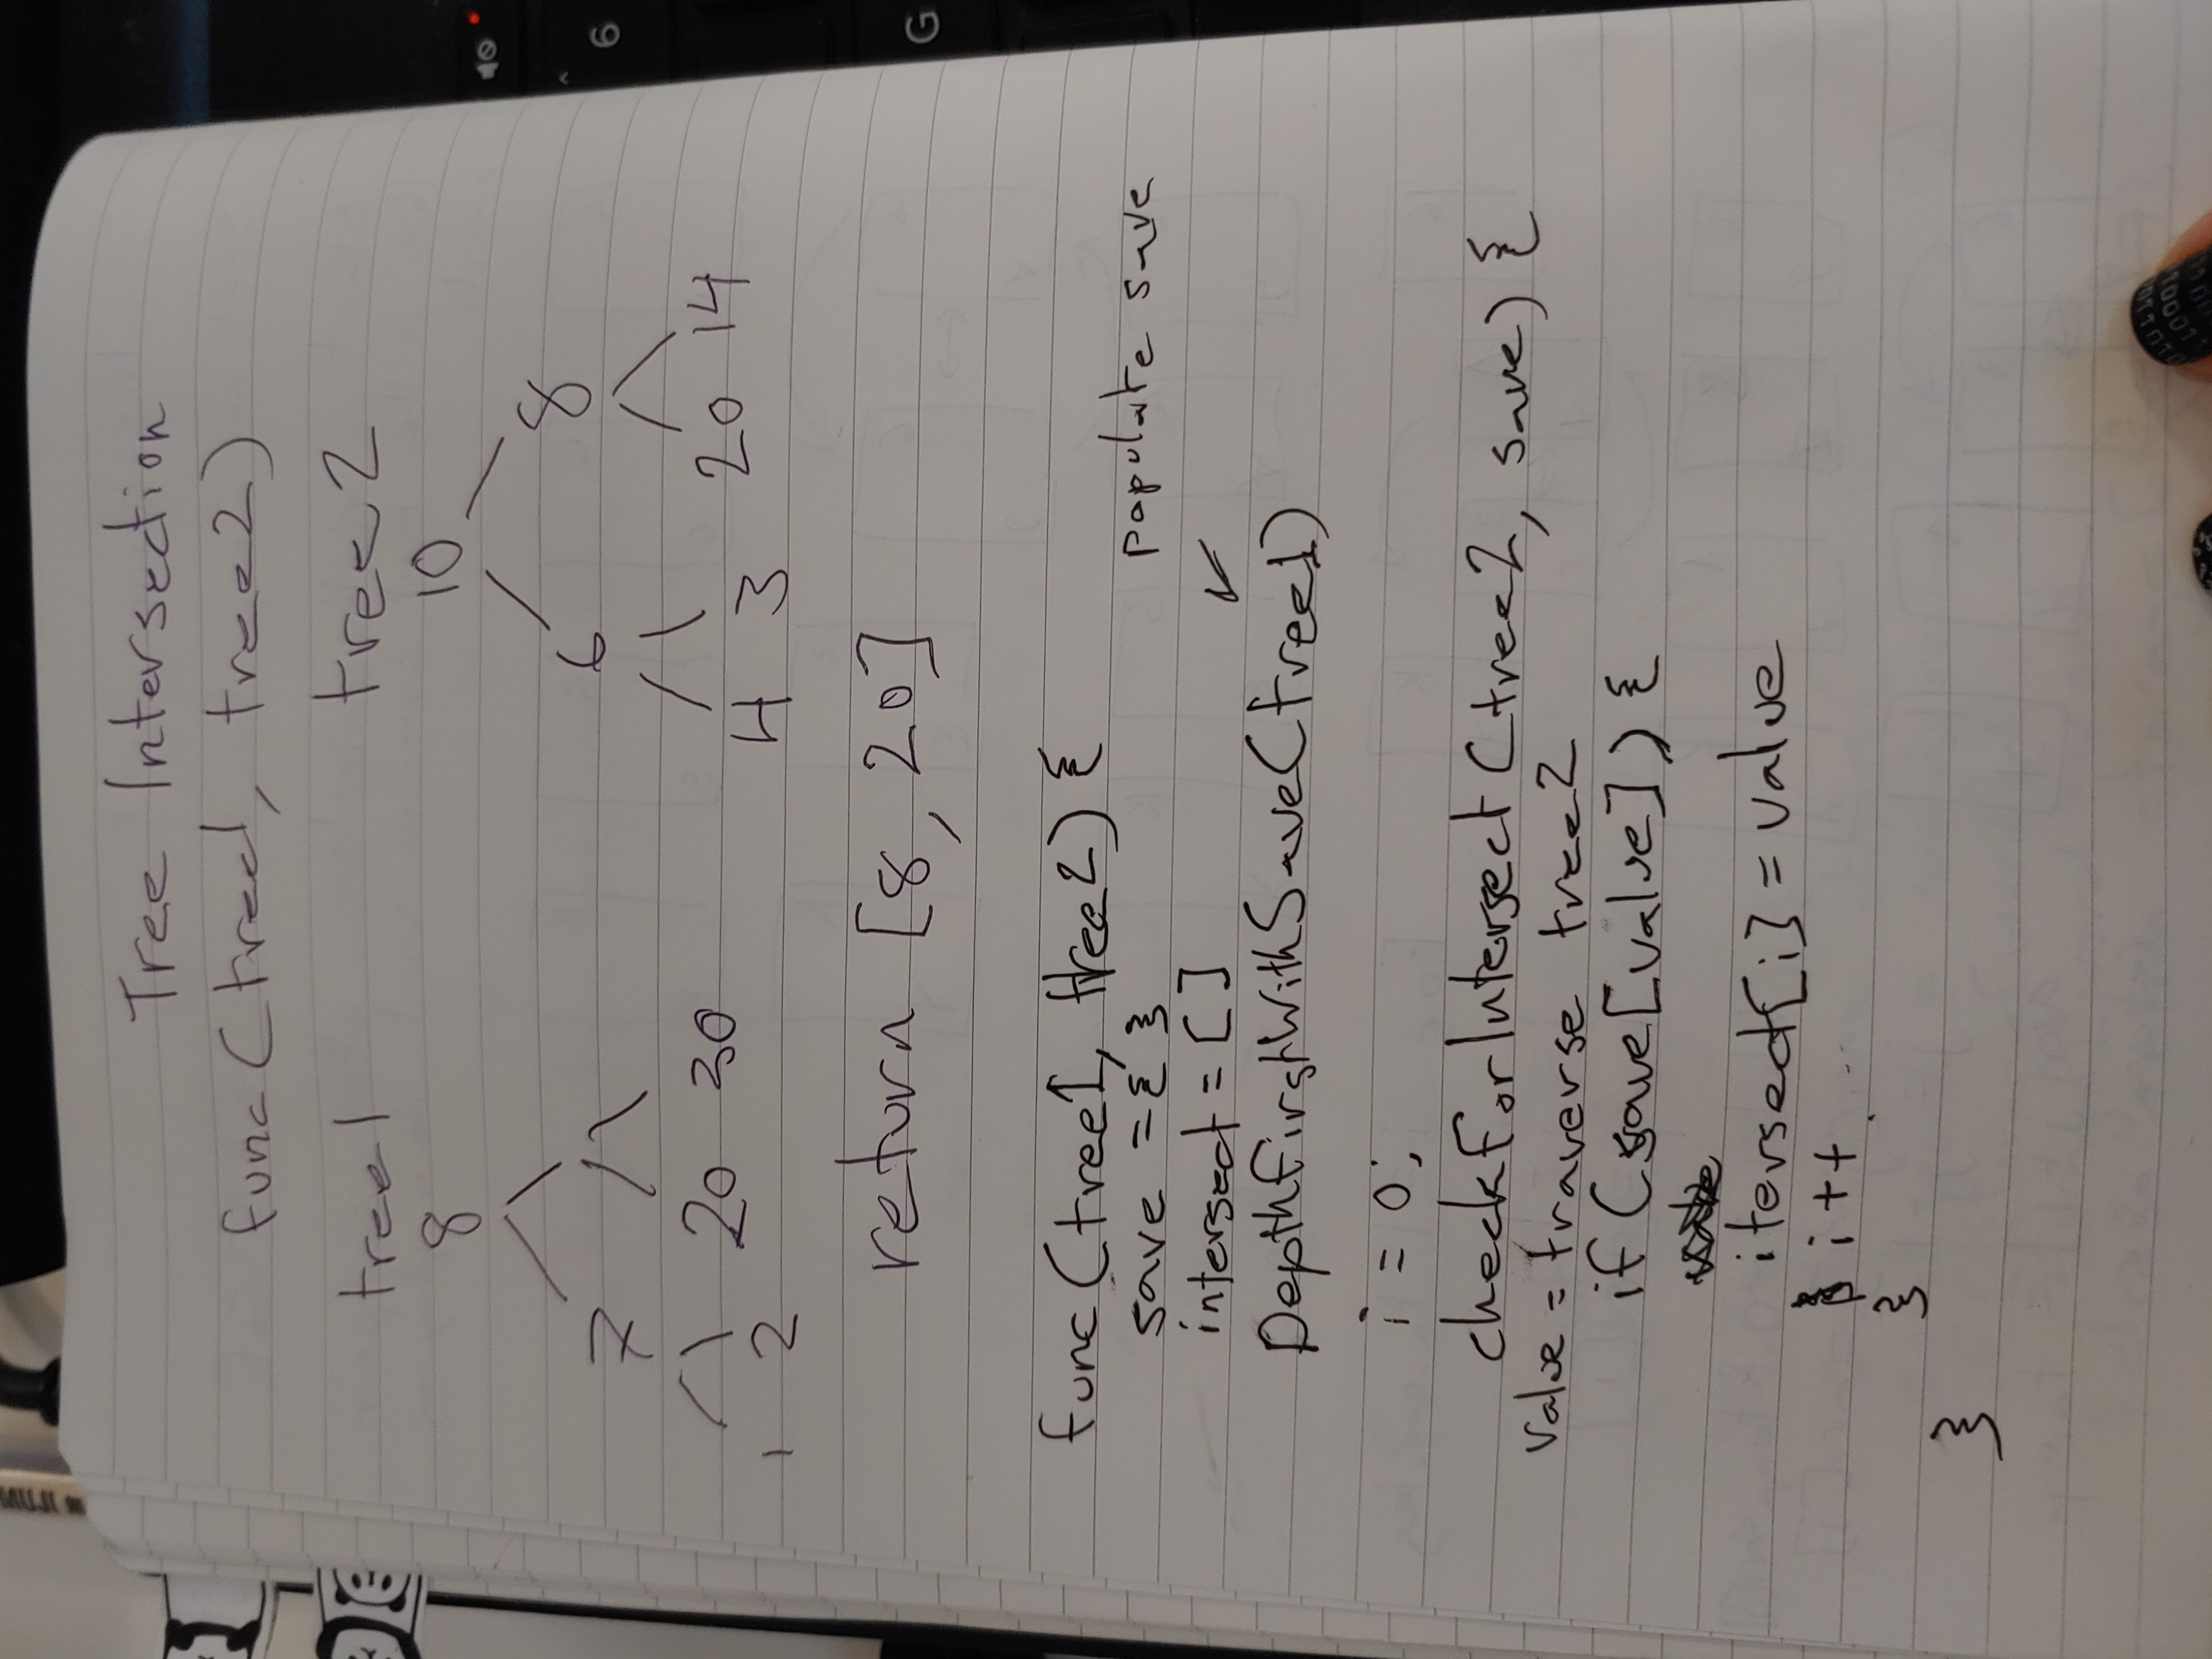 Tree Intersection
func(tree1, tree2)
tree1 tree2
8 10
7 6 8
1 2 20 30 4 3 20 14
return [8, 20]
func(tree1, tree2) {
save = { }
populate save
intersect = [ ]
DepthFirstWithSave(tree1)
i = 0;
checkForIntersect(tree2, save) {
value = traverse tree2
if (save[value]) {
itersect[i] = value
i++
}
}
6
G